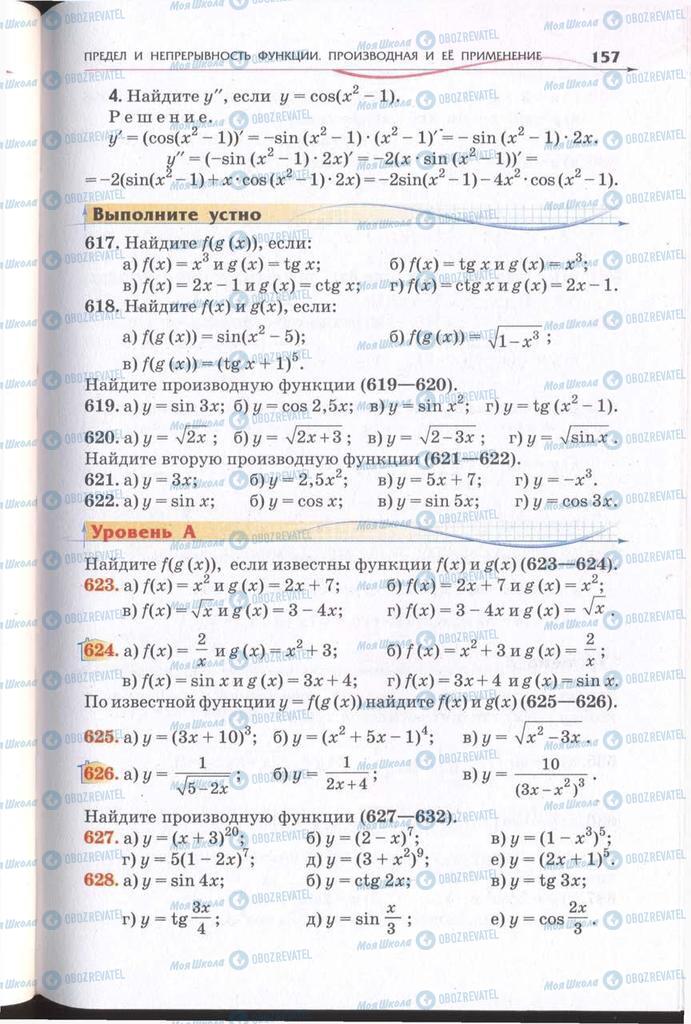 ПРЕДЕЛ И НЕПРЕРЫВНОСТЬ ФУНКЦИИ. ПРОИЗВОДНАЯ И ЕЁ ПРИМЕНЕНИЕ 157
4. Найдите y″, если y = cos(x² − 1).
Решение.
y′ = (cos(x² − 1))′ = −sin (x² − 1) · (x² − 1)′ = − sin (x² − 1) · 2x.
y″ = (−sin (x² − 1) · 2x)′ = −2(x · sin (x² − 1))′ =
= −2(sin(x² − 1) + x · cos (x² − 1) · 2x) = −2sin(x² − 1) − 4x² · cos (x² − 1).
Выполните устно
617. Найдите f(g (x)), если:
а) f(x) = x³ и g (x) = tg x; б) f(x) = tg x и g (x) = x³;
в) f(x) = 2x − 1 и g (x) = ctg x; г) f(x) = ctg x и g (x) = 2x − 1.
618. Найдите f(x) и g(x), если:
а) f(g (x)) = sin(x² − 5); б) f(g (x)) = √(1 − x³) ;
в) f(g (x)) = (tg x + 1)⁵.
Найдите производную функции (619—620).
619. а) y = sin 3x; б) y = cos 2,5x; в) y = sin x²; г) y = tg (x² − 1).
620. а) y = √(2x) ; б) y = √(2x + 3) ; в) y = √(2 − 3x) ; г) y = √(sin x) .
Найдите вторую производную функции (621—622).
621. а) y = 3x; б) y = 2,5x²; в) y = 5x + 7; г) y = −x³.
622. а) y = sin x; б) y = cos x; в) y = sin 5x; г) y = cos 3x.
Уровень А
Найдите f(g (x)), если известны функции f(x) и g(x) (623—624).
623. а) f(x) = x² и g (x) = 2x + 7; б) f(x) = 2x + 7 и g (x) = x²;
в) f(x) = √x и g (x) = 3 − 4x; г) f(x) = 3 − 4x и g (x) = √x .
624. а) f(x) = 2/x и g (x) = x² + 3; б) f (x) = x² + 3 и g (x) = 2/x ;
в) f(x) = sin x и g (x) = 3x + 4; г) f(x) = 3x + 4 и g(x) = sin x.
По известной функции y = f(g (x)) найдите f(x) и g(x) (625—626).
625. а) y = (3x + 10)³; б) y = (x² + 5x − 1)⁴; в) y = √(x² − 3x) .
626. а) y = 1/√(5 − 2x) ; б) y = 1/(2x + 4) ; в) y = 10/(3x − x²)³ .
Найдите производную функции (627—632).
627. а) y = (x + 3)²⁰; б) y = (2 − x)⁷; в) y = (1 − x³)⁵;
г) y = 5(1 − 2x)⁷; д) y = (3 + x²)⁹; е) y = (2x + 1)⁵.
628. а) y = sin 4x; б) y = ctg 2x; в) y = tg 3x;
г) y = tg 3x/4 ; д) y = sin x/3 ; е) y = cos 2x/3 .